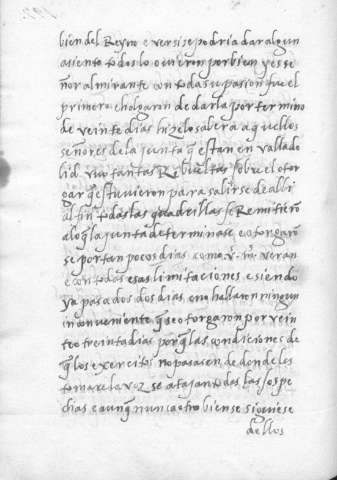 bien del Reyno e ver si se podria dar algun
asiento todos lo ovieron por bien y ese se
ñor almirante con toda su pasion fue el
primero e holgaron de darla por termino
de veinte dias hizelo saber a aquellos
señores de la junta q estan en vallado
lid uvo tantas Rebueltas sobre el otor
gar q estuvieron para salirse de alli
al fin todas las quadrillas se Remitierõ
a lo q la junta determinase e otorgarõ
se por tan pocos dias como v. m. veran
e con todas esas limitaciones e siendo
ya pasados dos dias e no hallaron ningun
inconveniente q se otorgaron por vein
te o treinta dias porq las condiciones de
q los exercitos no pasasen de donde los
tomare la voz se atajan todas las sospe
chas e aunq nunca otro bien se siguiese
dellos